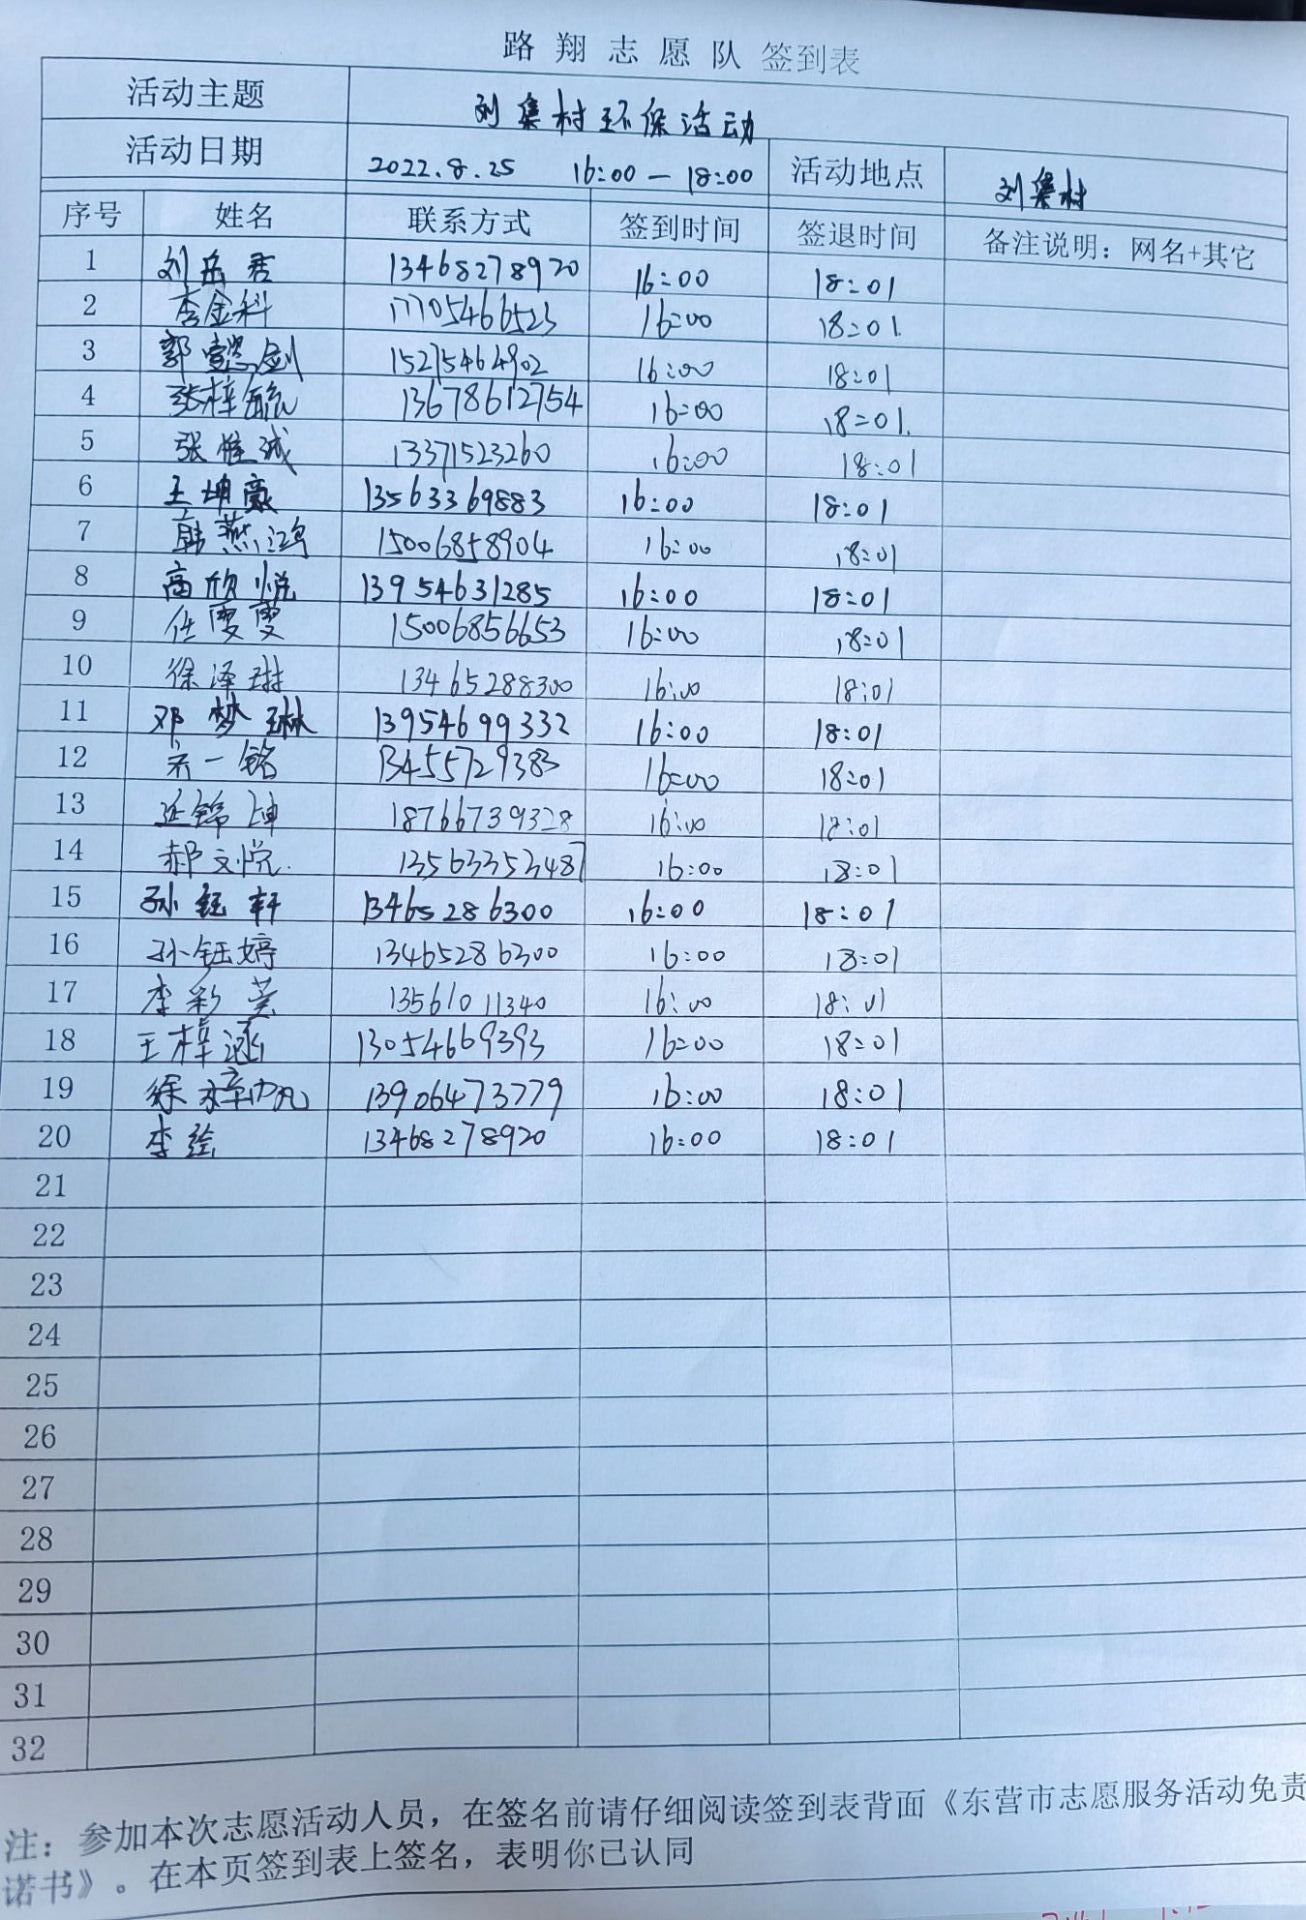 路翔志愿队 签到表
活动主题 刘集村环保活动
活动日期 2022.8.25 16:00—18:00 活动地点 刘集村
序号 姓名 联系方式 签到时间 签退时间 备注说明：网名+其它
1 刘岳君 13468278920 16:00 18:01
2 李金科 17705466523 16:00 18:01.
3 郭懿剑 15275464902 16:00 18:01
4 张梓毓 13678612754 16:00 18:01.
5 张胜诚 13371523260 16:00 18:01
6 王坤豪 13563369883 16:00 18:01
7 韩燕鸿 15006858904 16:00 18:01
8 高欣悦 13954631285 16:00 18:01
9 任雯雯 15006856653 16:00 18:01
10 徐泽琳 13465288300 16:00 18:01
11 邓梦琳 13954699332 16:00 18:01
12 一铭 13455729383 16:00 18:01
13 延锦坤 18766739328 16:00 18:01
14 郝文悦. 13563353487 16:00 18:01
15 孙钰轩 13465286300 16:00 18:01
16 孙钰婷 13465286300 16:00 18:01
17 李彩 13561011340 16:00 18:01
18 王梓涵 13054669393 16:00 18:01
19 徐梓帆 13906473779 16:00 18:01
20 李绘 13468278920 16:00 18:01
21
22
23
24
25
26
27
28
29
30
31
32
注：参加本次志愿活动人员，在签名前请仔细阅读签到表背面《东营市志愿服务活动免责
诺书》。在本页签到表上签名，表明你已认同